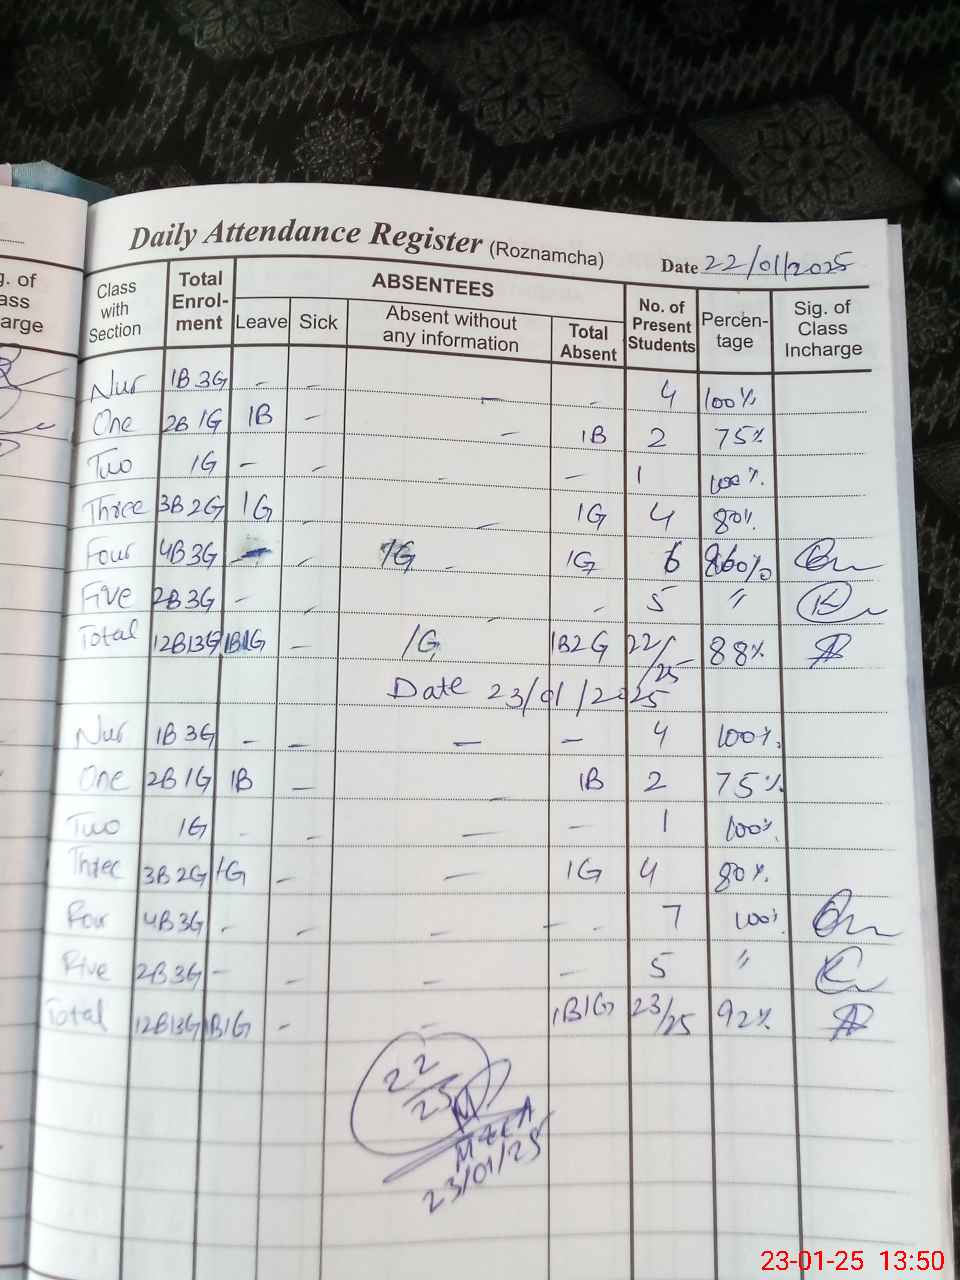 Daily Attendance Register (Roznamcha)
Date 22/01/2025
g. of
ass
arge
Class with Section
Total Enrol-ment
ABSENTEES
Leave Sick Absent without any information Total Absent
No. of Present Students
Percen-tage
Sig. of Class Incharge
Nur 1B 3G - - - - 4 100%
One 2B 1G 1B - - 1B 2 75%
Two 1G - - - - 1 100%
Three 3B 2G 1G - - 1G 4 80%
Four 4B 3G - - 1G - 1G 6
Five 2B 3G - - - - 5 "
Total 12B13G 1B1G - 1G 1B2G 22/25 88%
Date 23/01/2025
Nur 1B 3G - - - - 4 100%
One 2B 1G 1B - - 1B 2 75%
Two 1G - - - - 1 100%
Three 3B 2G 1G - - 1G 4 80%
Four 4B 3G - - - - 7 100%
Five 2B 3G - - - - 5 "
Total 12B13G 1B1G - - 1B1G 23/25 92%
22/25
23/01/25
23-01-25 13:50